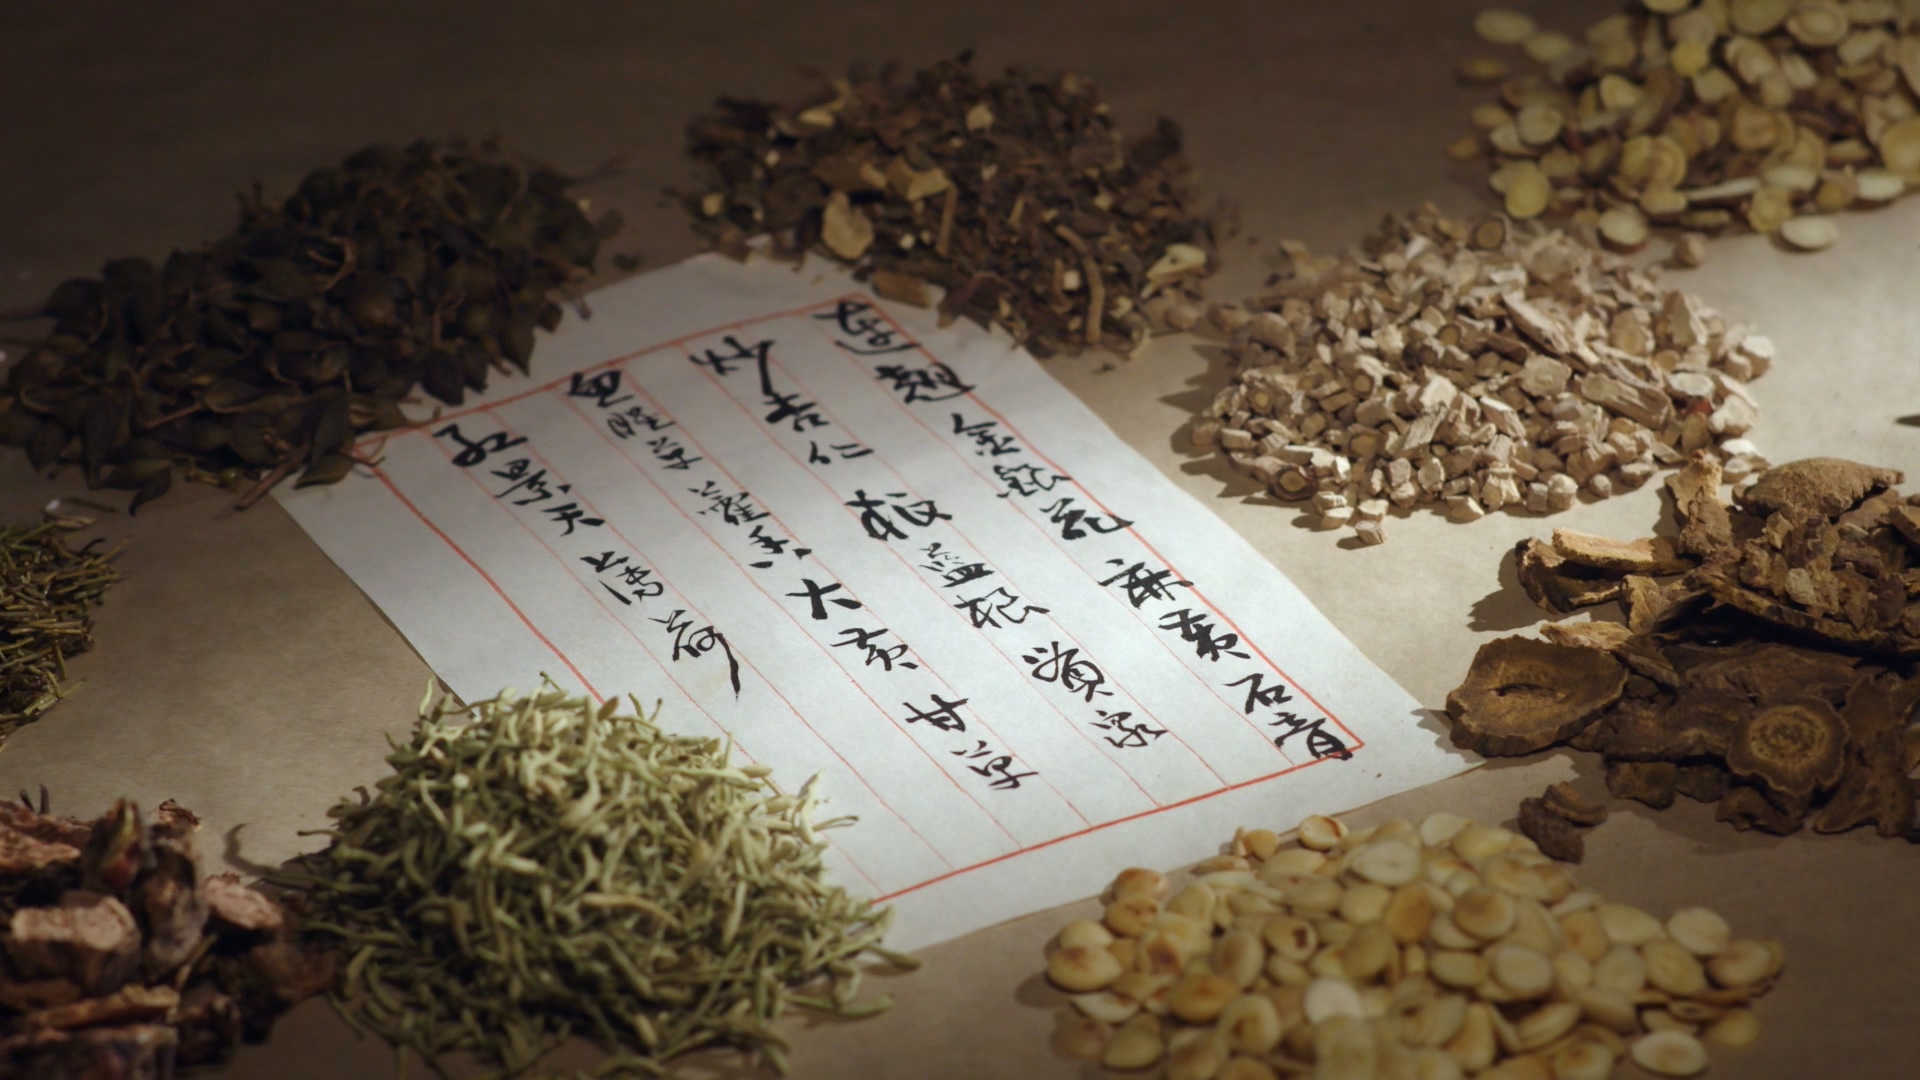 连翘金银花麻黄石膏
炒杏仁板蓝根贯众
鱼腥草藿香大黄甘草
红景天薄荷